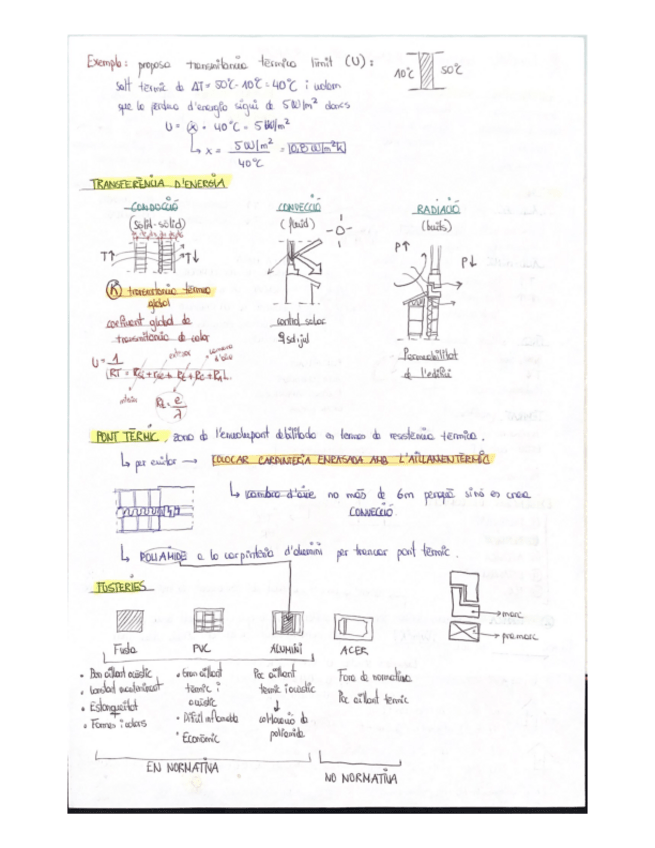 Exemple: proposa transmitància tèrmica límit (U):
10°C 50°C
salt tèrmic de ΔT = 50°C - 10°C = 40°C i volem
que la pèrdua d'energia sigui de 5W/m² doncs
U = x · 40°C = 5W/m²
x = 5W/m² / 40°C =
TRANSFERÈNCIA D'ENERGIA
CONDUCCIÓ CONVECCIÓ RADIACIÓ
(sòlid-sòlid) (fluid) (buits)
T↑ T↓
P↑ P↓
K transmitància tèrmica
global
coeficient global de
transmitància de calor
control solar
Permeabilitat
de l'edifici
U = 1
RT =
exterior
interior
cambra
d'aire
e
λ
PONT TÈRMIC, zona de l'envolupant debilitada en termes de resistència tèrmica.
↳ per evitar → COLOCAR CARPINTERIA ENRASADA AMB L'AÏLLAMENT TÈRMIC
↳ cambra d'aire no més de 6m perquè sinó es crea
CONVECCIÓ
↳ POLIAMIDE a la carpinteria d'alumini per trencar pont tèrmic.
FUSTERIES
→ marc
→ premarc
Fusta PVC ALUMINI ACER
• Bon aïllant acústic
• Estanqueïtat
• Formes i colors
• Gran aïllant
tèrmic i
acústic
• Difícil inflamable
• Econòmic
Poc aïllant
tèrmic i acústic
↓
col·locació de
poliamida
Fora de normativa
Poc aïllant tèrmic
EN NORMATIVA NO NORMATIVA